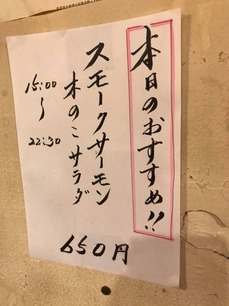 本日のおすすめ!!
スモークサーモン
木のこサラダ
15:00
〜
22:30
650円